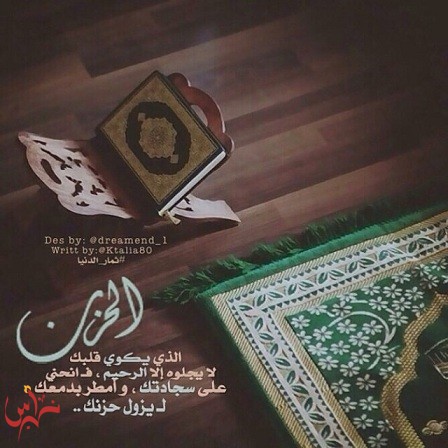 Des by: @dreamend_1
Writt by:@Ktalia80
#ثمار_الدنيا
الحزن
الذي يكوي قلبك
لا يجلوه إلا الرحيم ، فـ انحني
على سجادتك ، و أمطر بدمعك
لـ يزول حزنك ..